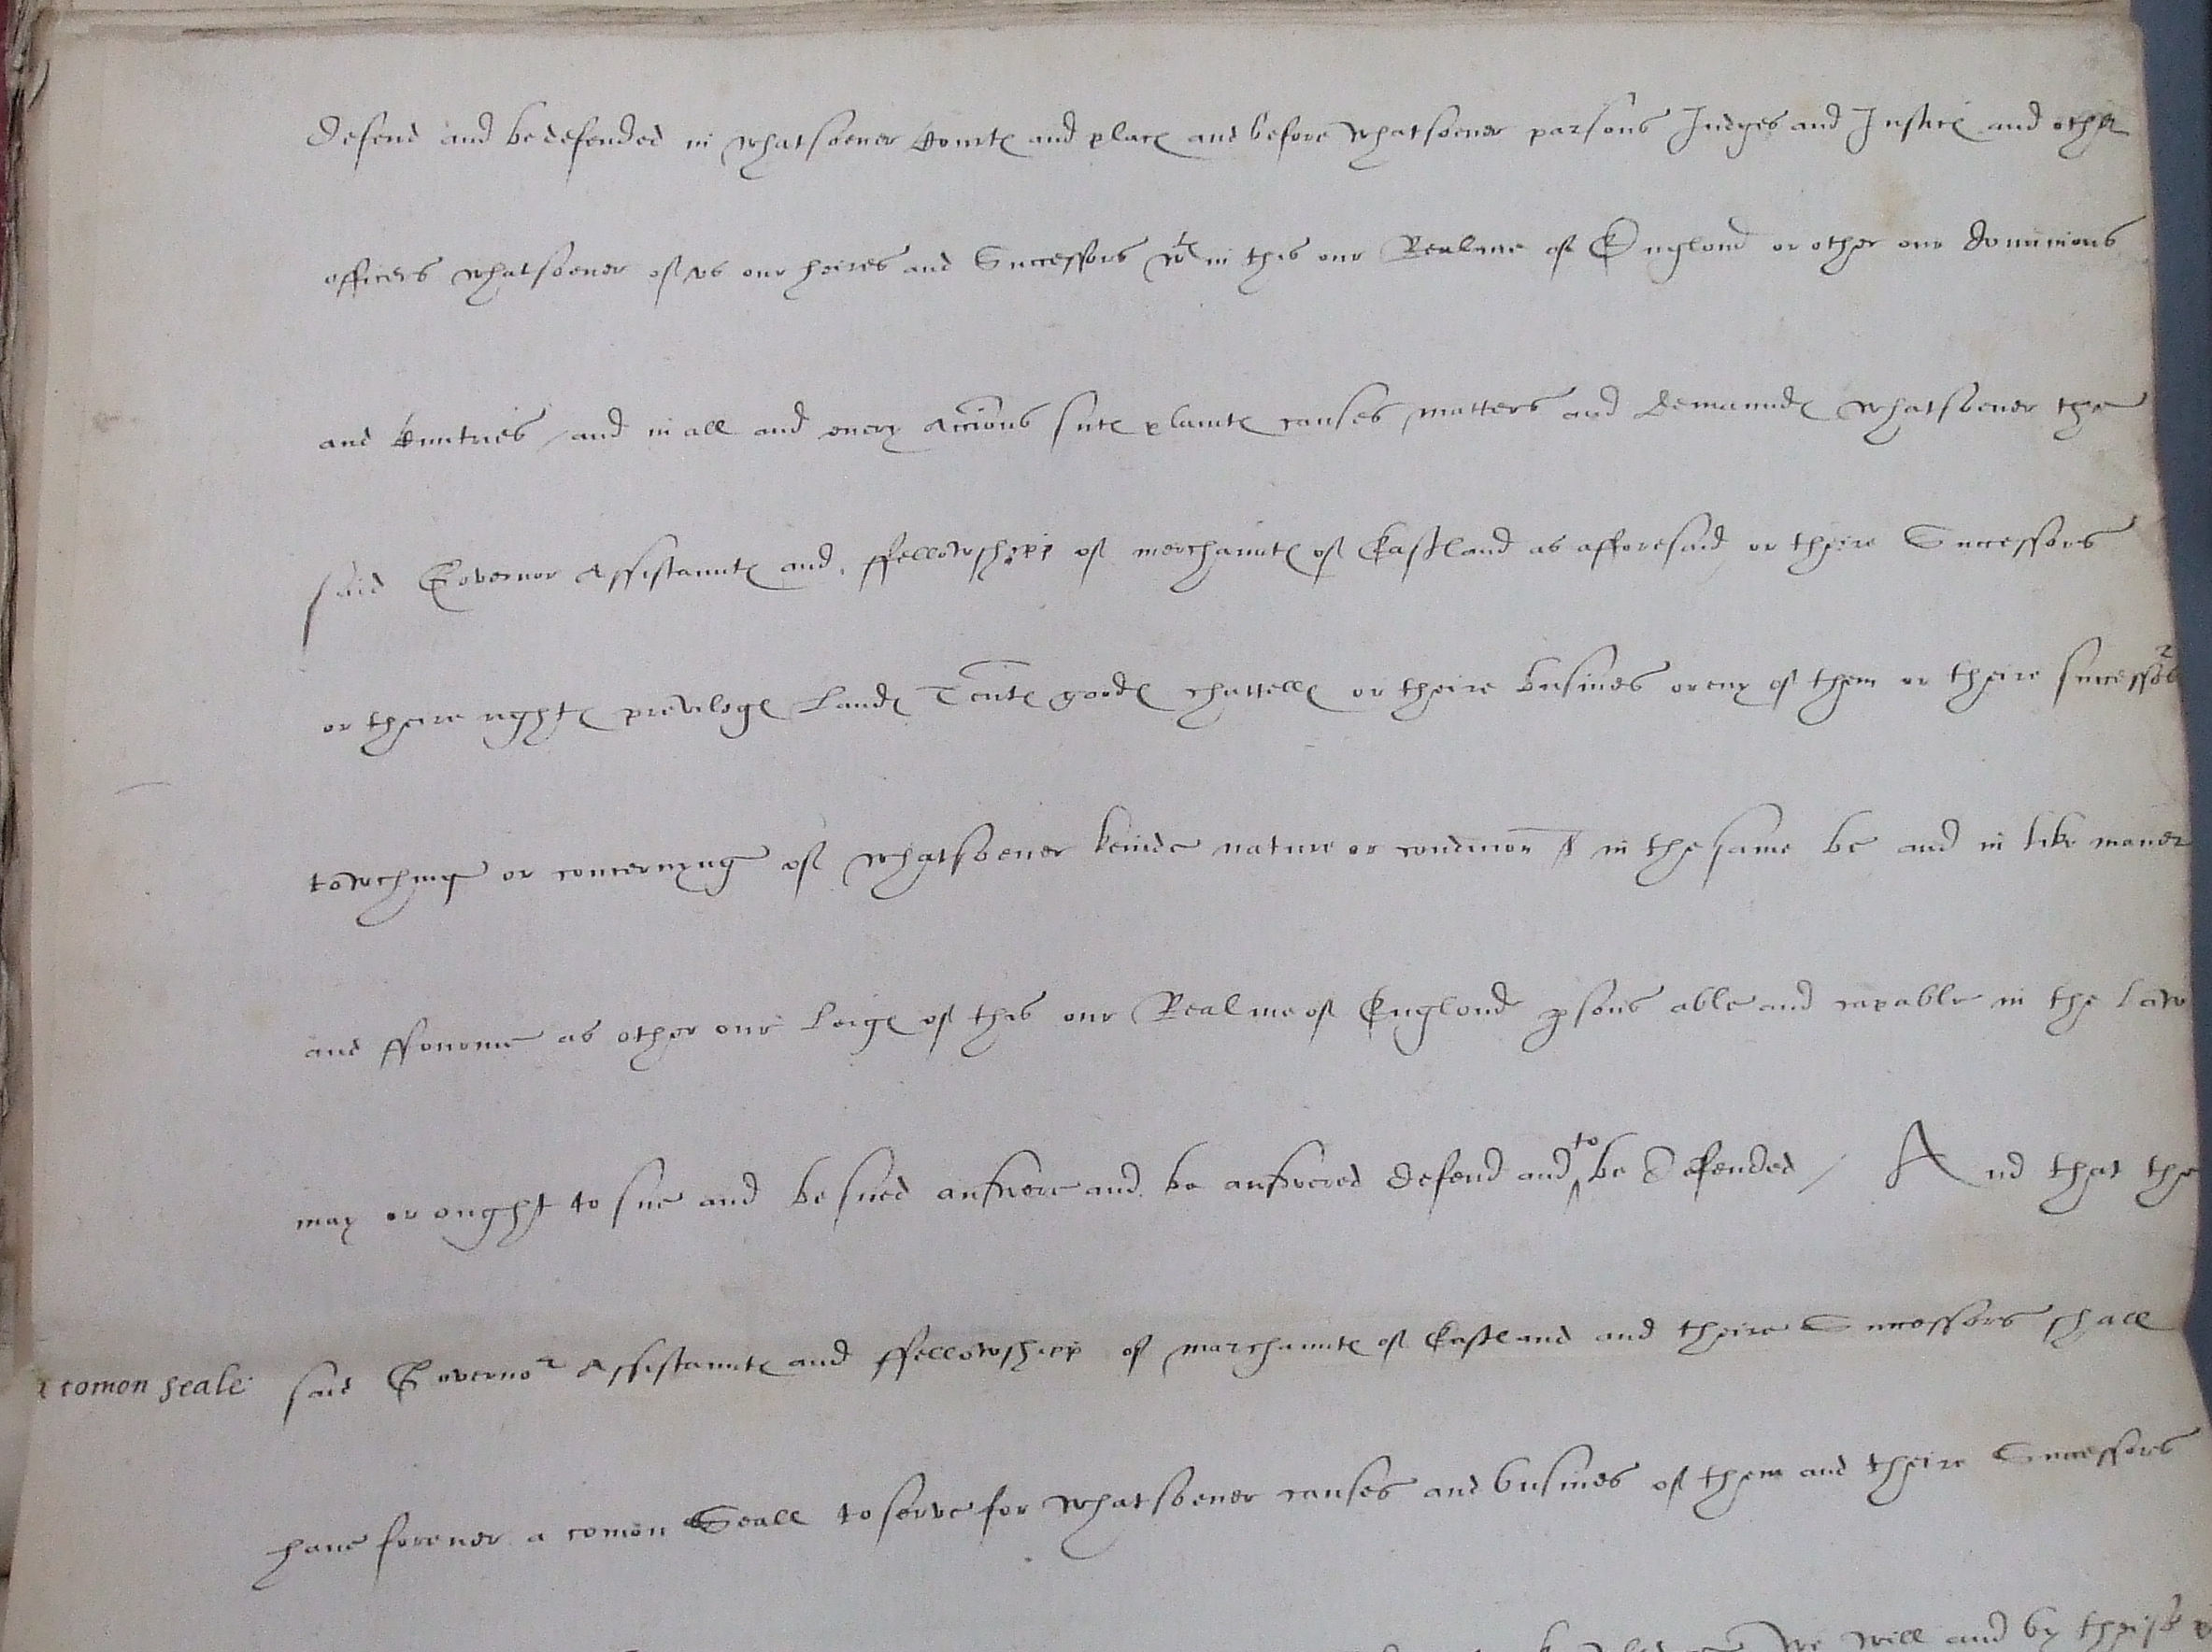 defend and be defended in whatsoeuer Courtes and places and before whatsoeuer parsons Judges and Justices and other
officers whatsoeuer of vs our heires and Successors wtin this our Realme of England or other our dominions
and Cuntries / and in all and euery accions sutes plaintes causes matters and demaundes whatsoeuer the
said Governor Assistauntes and ffellowshipp of merchauntes of Eastland as afforesaid or theire Successors
or theire rightes previleges Landes Tentes goodes chattelles or theire busines or eny of them or theire successors
towching or concernyng of whatsoeuer keinde nature or condicion in the same be and in like maner
and ffourme as other our Leiges of this our Realme of Englond psons able and capable in the Law
may or ought to sue and be sued answere and be answered defend and to be defended / And that the
a comon seale
said Governor Assistauntes and ffellowshipp of marchauntes of Eastland and theire Successors shall
haue foreuer a comon Seall to serve for whatsoeuer causes and busines of them and theire Successors
we will and by theise